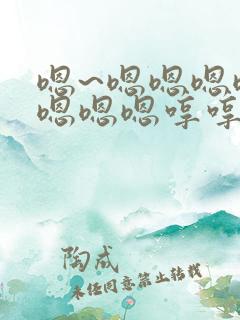 嗯~嗯嗯嗯
嗯嗯嗯哼哼
陶成
未经同意禁止转载